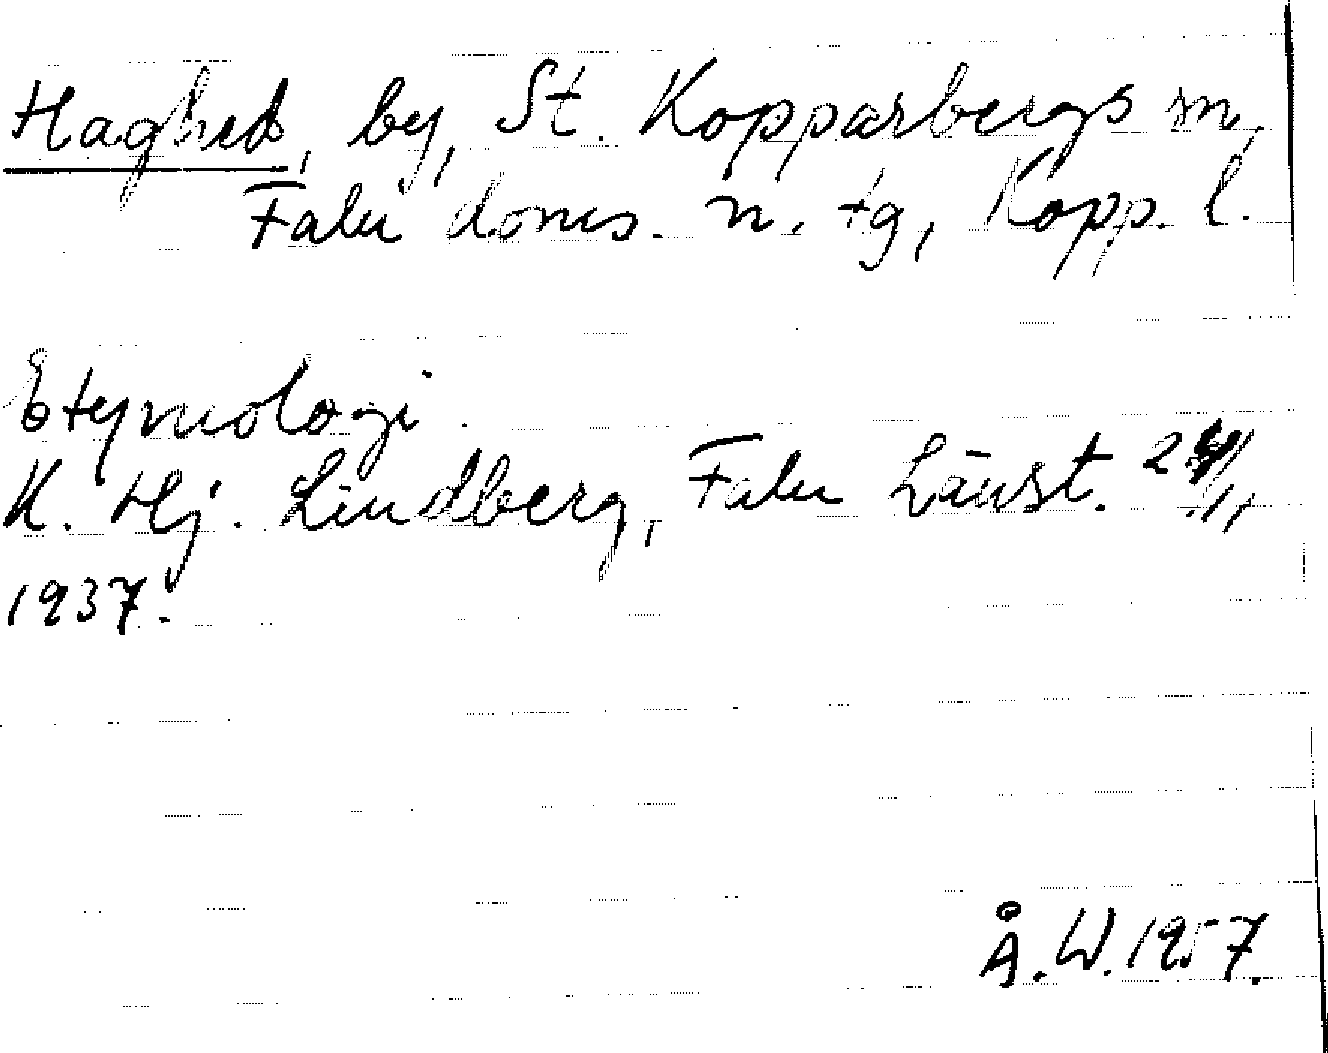 Haghed, by, St. Kopparbergs sn,
Falu doms. n. tg, Kopp. l.
Etymologi.
K. Hj. Lindberg, Falu Länst.
1937.
Å. W. 1957.